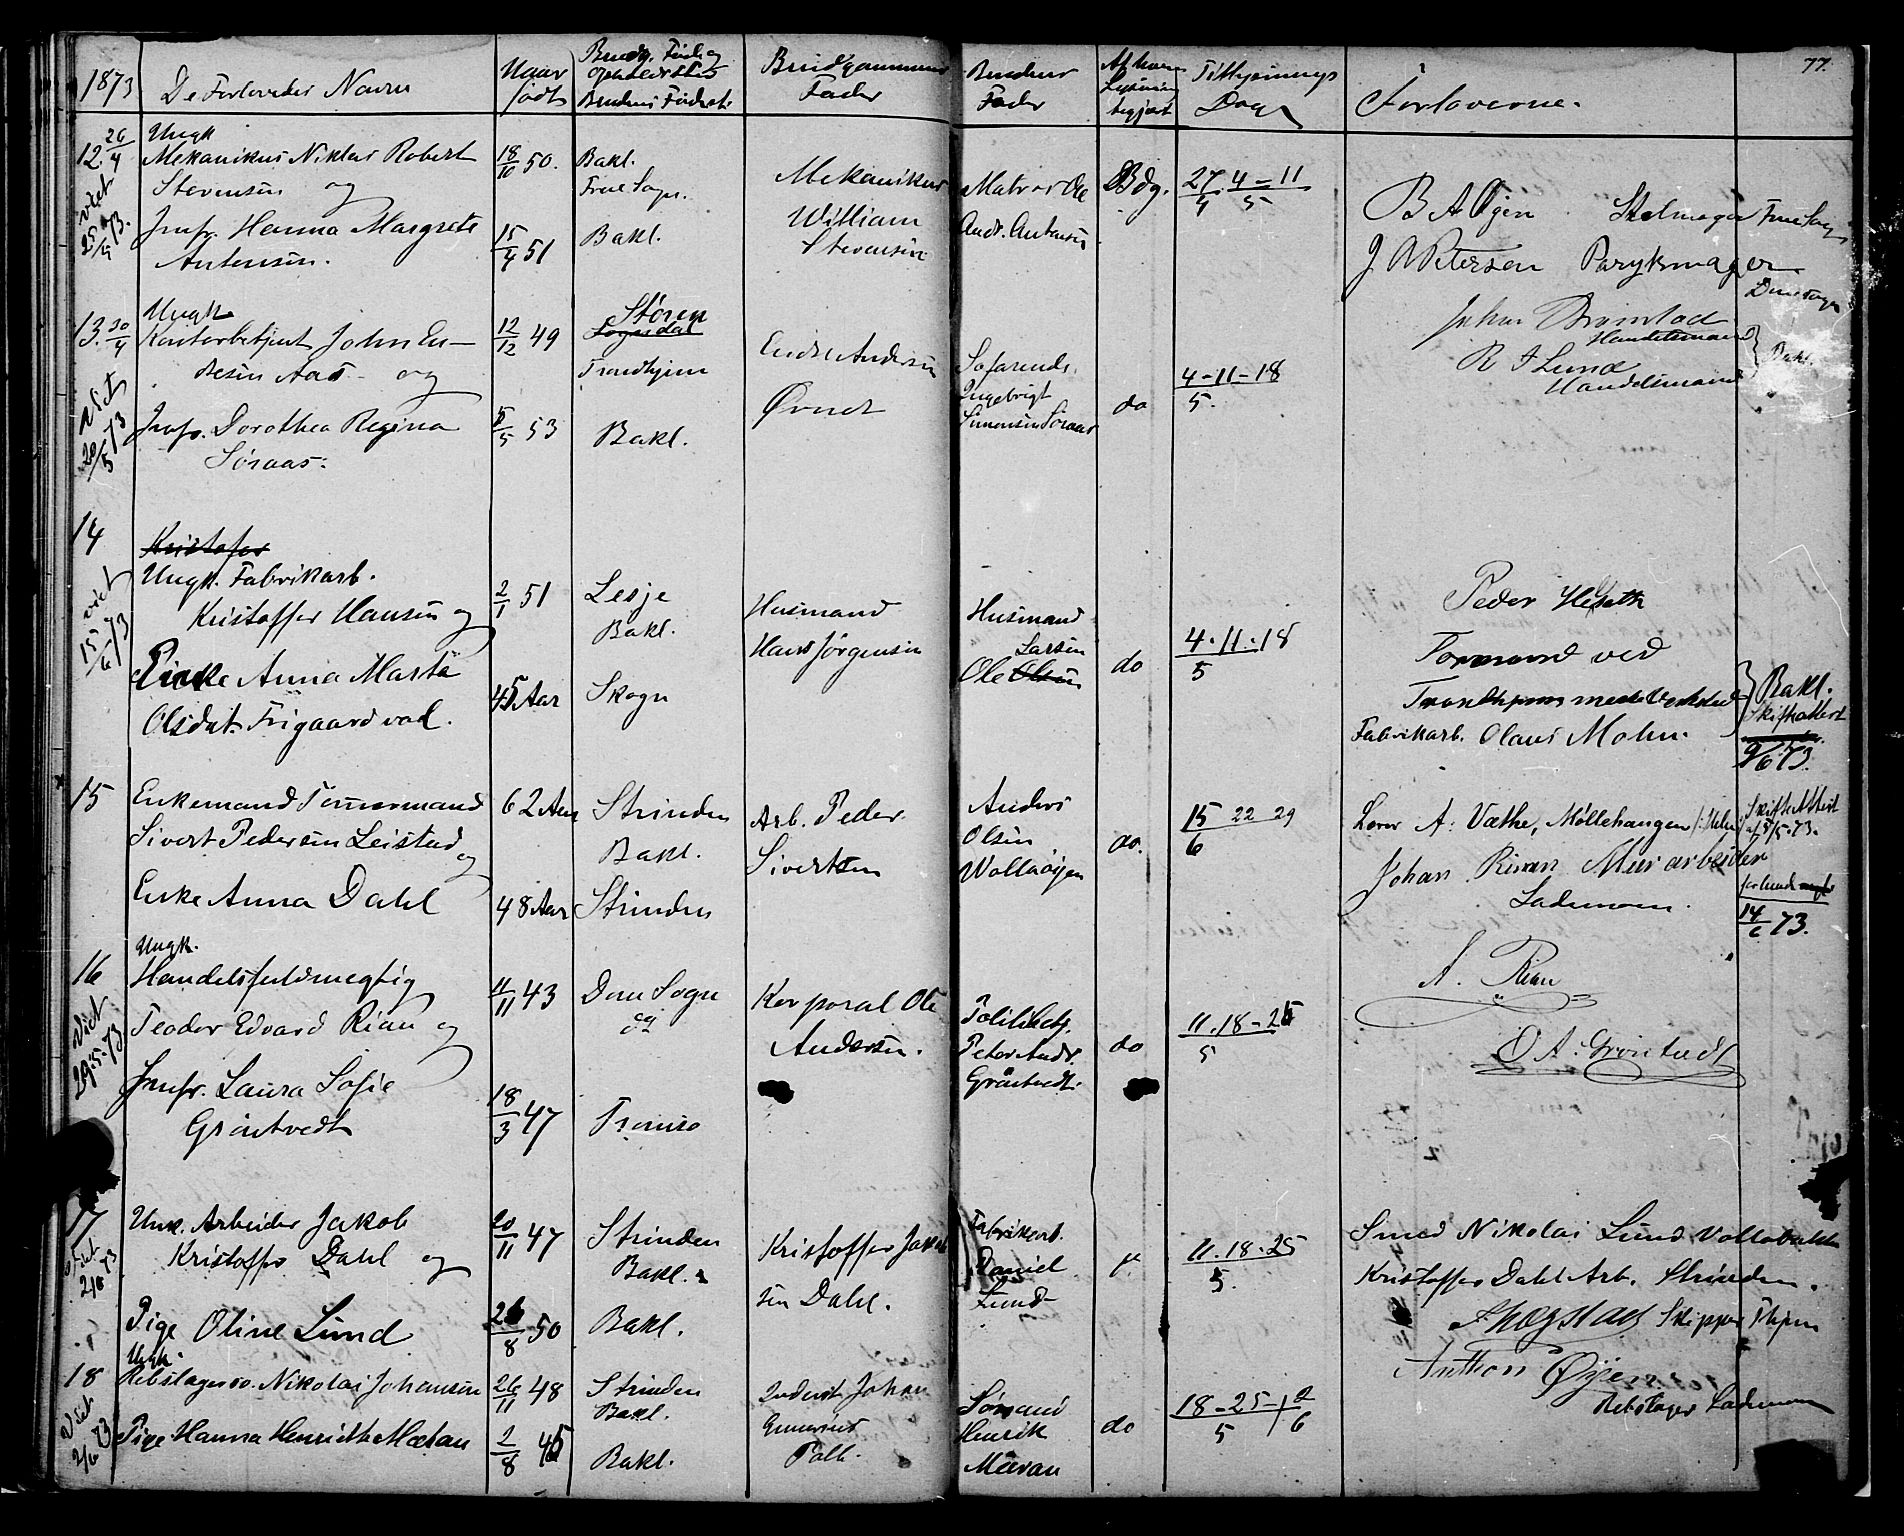 1873
De Forlovedes Navn
Naar født
Brudg. Føds og
Opholdssted
Brudens Fødest.
Brudgommens Fader
Brudens Fader
Af hvem Lysning begjært
Tillysnings Dage
Forloverne.
77.
12. 26/4
Viet 25/5 73.
Ungk
Mekanikus Niklas Robert
Stevensen og
Jmfr. Hanna Margrete
Antonsen.
18/10 50.
15/4 51
Bakl.
Frue Sogn.
Bakl.
Mekanikus
William
Stevensen
Matros Ole
Andr. Antonsen
Bdg.
27/4 4-11/5
B A Øyen Stolmager Frue Sogn
J N Petersen Parykmager
Domsogn
13. 30/4
Viet 20/5 73
Ungk
Kontorbetjent John En-
dresen Aas og
Jmfr. Dorothea Regina
Søraas.
12/12 49
5/5 53
Støren
Sognedal
Trondhjem
Bakl.
Endre Andersen
Øvndt
Søfarende
Ingebrigt
Simonsen Søraas
do
4-11-18
5.
Johan Bromstad
Handelsmand
R I Lund
Handelsmand
Bakl.
14
viet 15/6 73
Kristofer
Ungk. Fabrikarb.
Kristoffer Hansen og
Enke Anna Marta
Olsdat. Frigaardvad.
2/1 51
45 Aar
Lesje
Bakl.
Skogn
Husmand
Hans Jørgensen
Husmand
Larsen
Ole Olsen
do
4-11-18
5
Peder Heseth
Formand ved
Trondhjems mek Verksted
Fabrikarb. Olaus Mohn.
Bakl.
Skifteattest
9/6 73.
15
Enkemand Tømmermand
Sivert Pedersen Leistad og
Enke Anna Dahl
62 Aar
48 Aar
Strinden
Bakl.
Strinden
Arb. Peder
Sivertsen
Anders
Olsen
do.
15 22 29
6
Lærer A. Væthe, Møllehaugen
Johan Rian Murarbeider
Lademoen.
Skifte Attest
af 5/5-73.
14/6 73.
16
Viet 29-5-73
Ungk.
Handelsfuldmegtig
Teodor Edvard Rian og
Jmfr. Laura Sofie
Grøntvedt
11/11 43
18/3 47
Dom Sogn
Tromsø
Korporal Ole
Andersen.
Politibetj.
Peter Andr.
Grøntvedt.
do
11-18-25
5
A. Rian
O A. Grøntvedt
17
Viet 2/6 73
Unk. Arbeider Jakob
Kristoffer Dahl og
Pige Oline Lund
20/11 47
26/8 50
Strinden
Bakl.
Bakl.
Kristoffer Jakob
sen Dahl.
Fabrikarb.
Daniel
Lund
11-18-25
5.
Smed Nikolai Lund Vollabakk
Kristoffer Dahl Arb. Strinden.
Skipper Thjem
18
Viet 2/6 73
Ungk.
Rebslagersv. Nikolai Johansen
Pige Hanna Henriette Mæhan
26/11 48
2/8 45
Strinden
Bakl.
Bakl.
Inderst Johan
Gunerius
Sømand
Henrik
Meeran
do
18-25-1/6
5
Anthon Øyen
Rebslager Lademoen